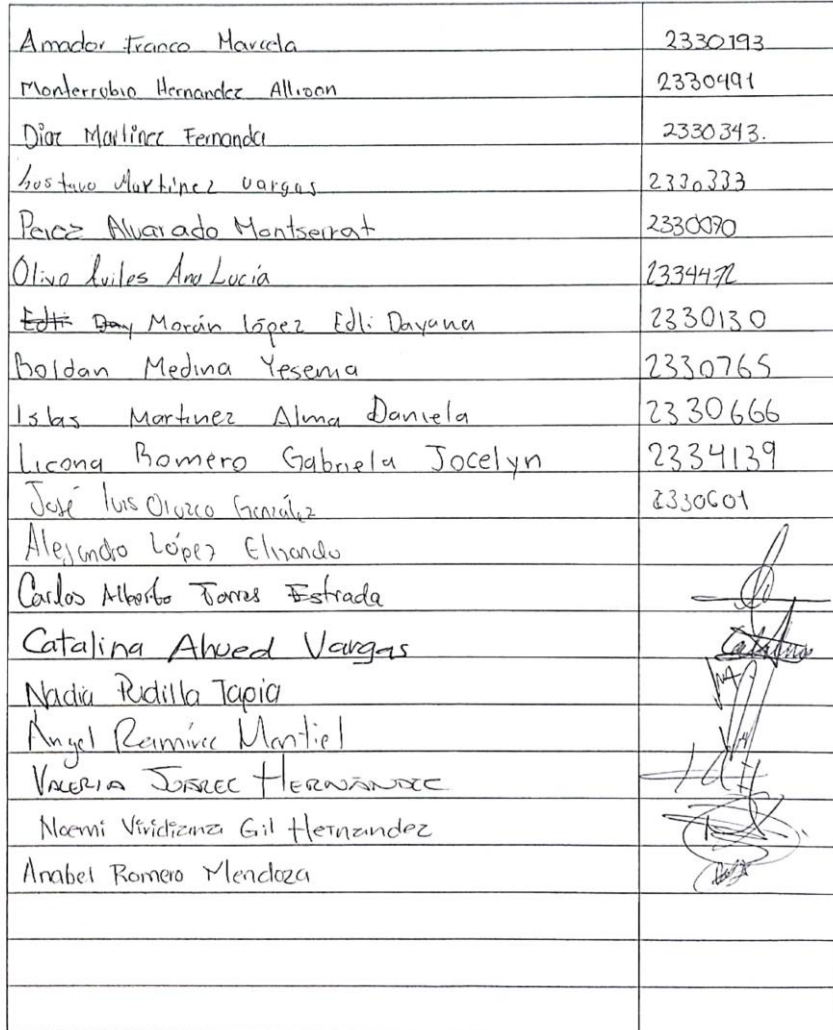 Amador Franco Marcela 2330193
Monterrubio Hernandez Allison 2330491
Díaz Martínez Fernanda 2330343.
Gustavo Martínez Vargas 2330333
Perez Alvarado Montserrat 2330070
Olivo Aviles Ana Lucía 2334472
Morán López Edli Dayana 2330130
Roldan Medina Yesenia 2330765
Islas Martinez Alma Daniela 2330666
Licona Romero Gabriela Jocelyn 2334139
José luis Orozco González 2330601
Alejandro López Elizando
Carlos Alberto Torres Estrada
Catalina Ahued Vargas
Nadia Padilla Tapia
Ángel Ramírez Montiel
VALERIA JUÁREZ HERNÁNDEZ
Noemi Viridiana Gil Hernandez
Anabel Romero Mendoza